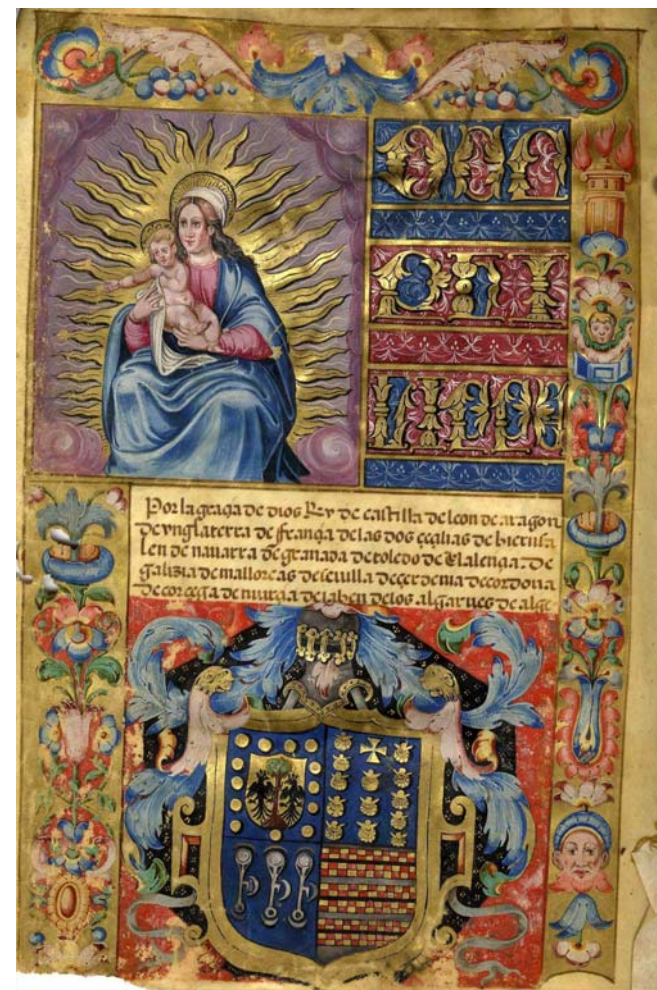 DON
PHI
LIPPE
Por la graçia de dios Rey de castilla de leon de aragon
de ynglaterra de françia de las dos çeçilias de hierusa
len de nauarra de granada de toledo de Valençia. de
galizia de mallorcas de seuilla de çerdenia de cordoua
de corçega de murçia de jahen de los algarues de alge